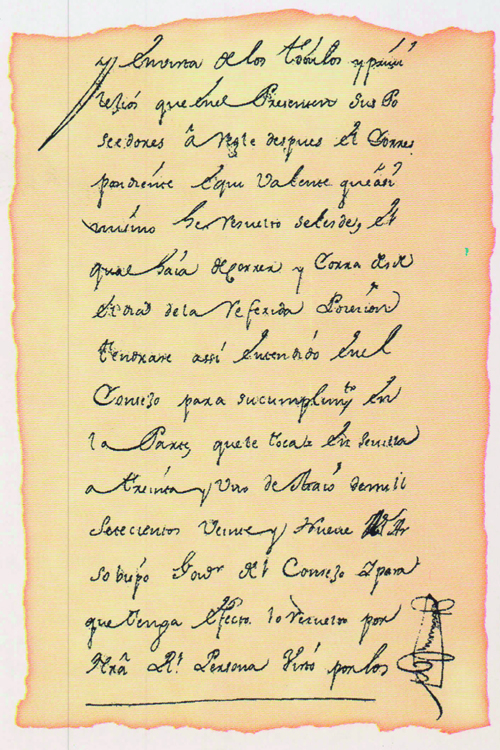 y en vista de los titulos y privi
lexios que en el Presenten sus Po
sedores â Regle despues el Corres
pondiente equivalente que asi
mismo he resuelto seles de, el
qual haia de Correr y Corra desde
el dia de la Referida Posesion
tendrase assi entendido en el
Consejo para su cumplimto en
la Parte, que le tocare en sevilla
a treinta y Uno de Maio de mill
setecientos Veinte y Nueve Al Ar
sobispo Govr del Consejo Y para
que tenga efecto lo resuelto por
Nrâ Rl Persona Visto por los